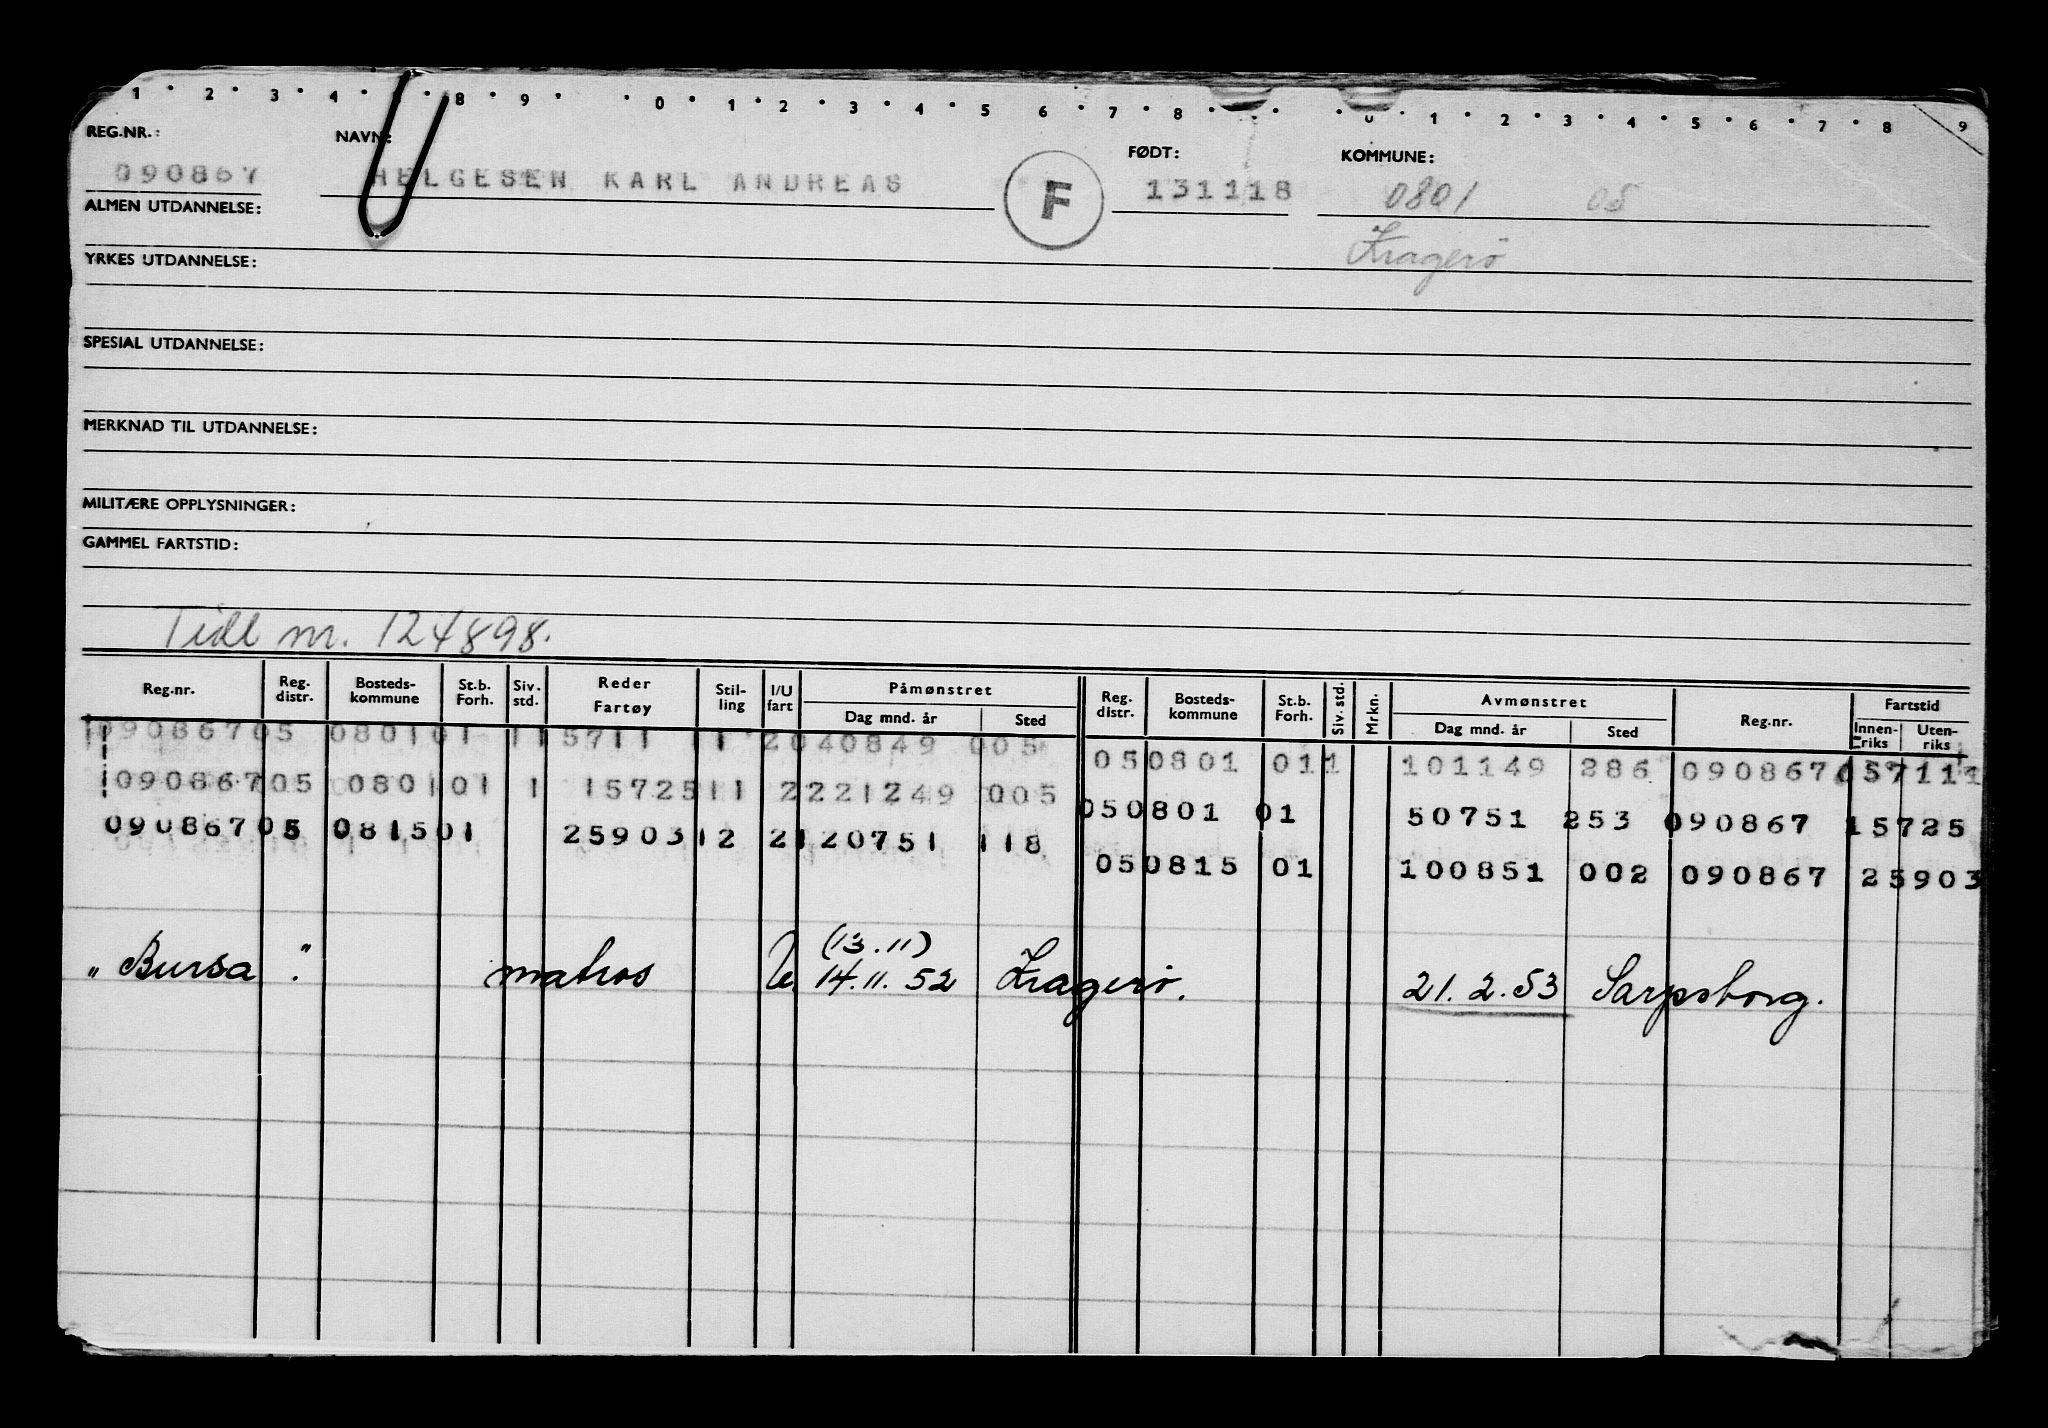 1 • 2 • 3 • 4 • 8 • 9 • • 0 • 1 • 2 • 3 • 4 • 5 6 • 7 • 8 • • • 0 • 1 • 2 • 3 • 4 • 5 • 6 • 7 • 8 9
REG.NR.: NAVN: FØDT: KOMMUNE:
090867 HELGESEN KARL ANDREAS F 131118 0801 05
ALMEN UTDANNELSE:
Kragerö
YRKES UTDANNELSE:
SPESIAL UTDANNELSE:
MERKNAD TIL UTDANNELSE:
MILITÆRE OPPLYSNINGER:
GAMMEL FARTSTID:
Tidl nr. 124898.
Reg.nr. Reg. distr. Bosteds-kommune St.b. Forh. Siv. std. Reder Fartøy Stil-ling I/U fart Påmønstret Dag mnd. år Sted Reg. distr. Bosteds-kommune St.b. Forh. Siv. std. Mrkn. Avmønstret Dag mnd. år Sted Reg.nr. Fartstid Innen-riks Uten-riks
090867 05 0801 01 1 5711 11 2 040849 005
050801 01 1 101149 286 090867 05711
090867 05 0801 01 1 15725 11 2 221249 005
050801 01 50751 253 090867 15725
090867 05 0815 01 25903 12 2 120751 118
050815 01 100851 002 090867 25903
(13.11)
„Bursa". matros U. 14.11.52 Kragerö. 21.2.53 Sarpsborg.